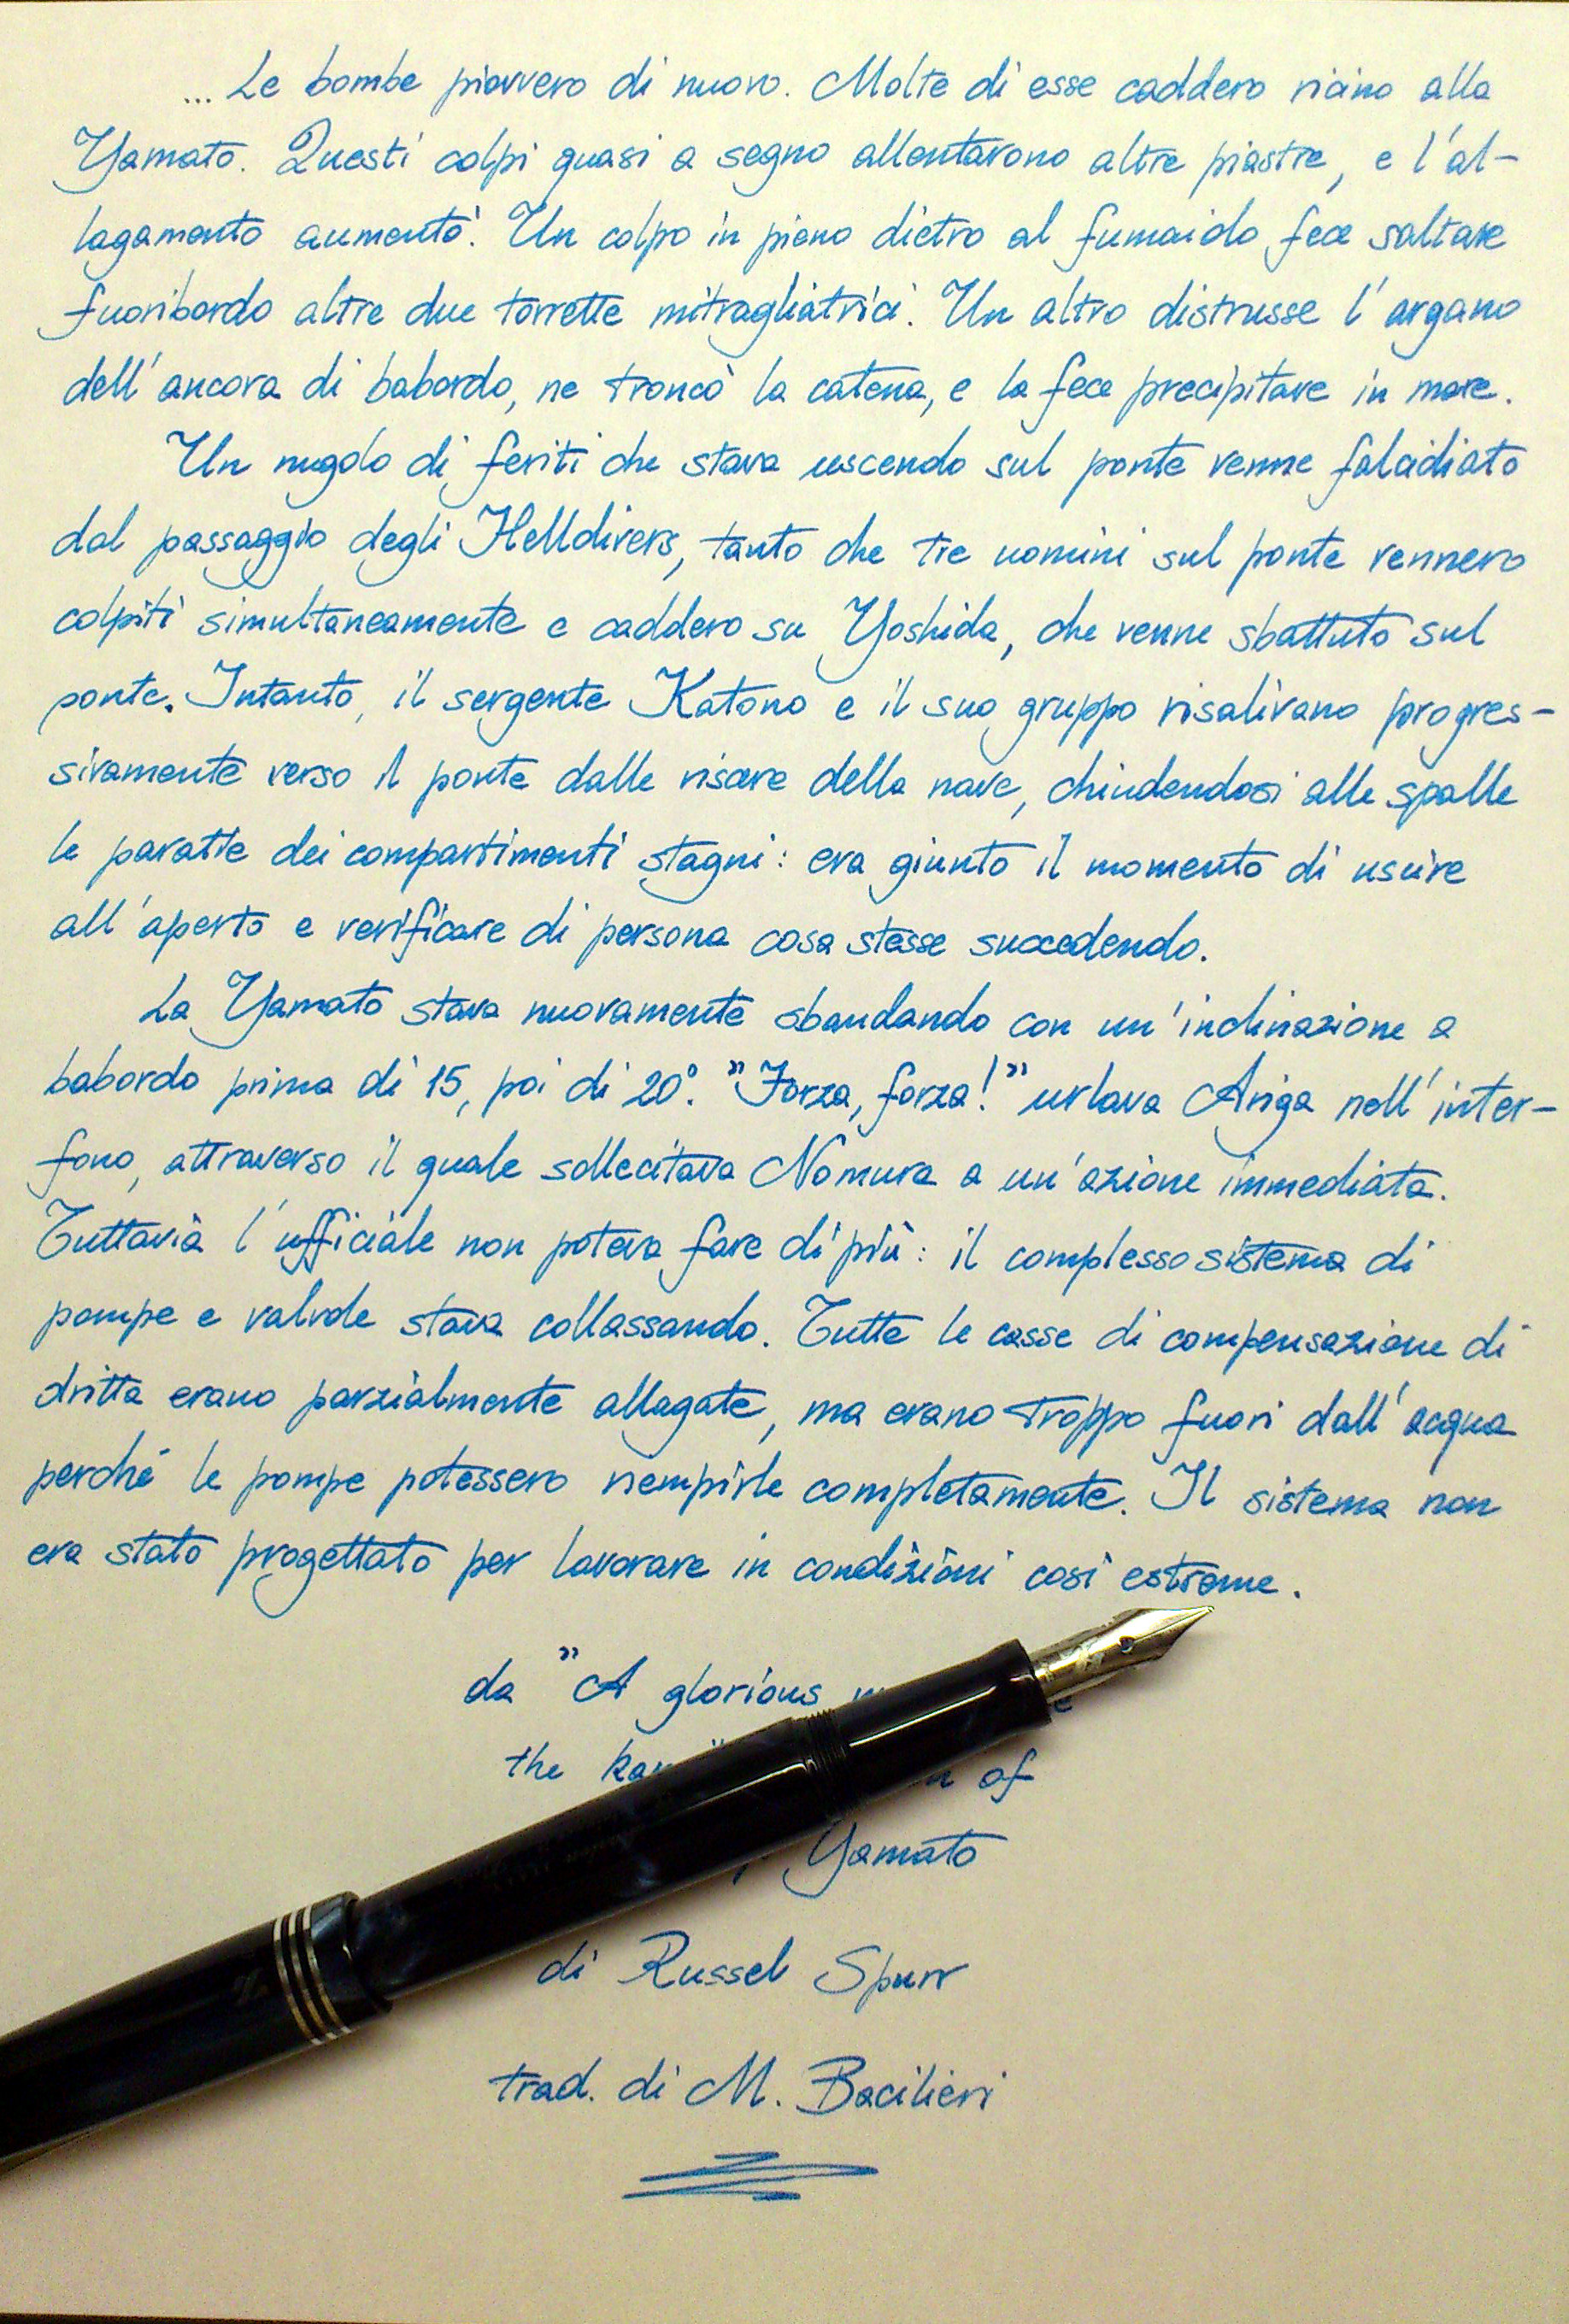 ... Le bombe piovvero di nuovo. Molte di esse caddero vicino alla
Yamato. Questi colpi quasi a segno allentavono altre piastre, e l'al-
lagamento aumentò. Un colpo in pieno dietro al fumaiolo fece saltare
fuoribordo altre due torrette mitragliatrici. Un altro distrusse l'argano
dell'ancora di babordo, ne troncò la catena, e la fece precipitare in mare.
Un nugolo di feriti che stava uscendo sul ponte venne falcidiato
dal passaggio degli Helldivers, tanto che tre uomini sul ponte vennero
colpiti simultaneamente e caddero su Yoshida, che venne sbattuto sul
ponte. Intanto, il sergente Katono e il suo gruppo risalivano progres-
sivamente verso il ponte dalle viscere della nave, chiudendosi alle spalle
le paratie dei compartimenti stagni: era giunto il momento di uscire
all'aperto e verificare di persona cosa stesse succedendo.
La Yamato stava nuovamente sbandando con un'inclinazione a
babordo prima di 15, poi di 20°. "Forza, forza!" urlava Ariga nell'inter-
fono, attraverso il quale sollecitava Nomura a un'azione immediata.
Tuttavia l'ufficiale non poteva fare di più: il complesso sistema di
pompe e valvole stava collassando. Tutte le casse di compensazione di
dritta erano parzialmente allagate, ma erano troppo fuori dall'acqua
perché le pompe potessero riempirle completamente. Il sistema non
era stato progettato per lavorare in condizioni così estreme.
da "A glorious
the of
Yamato
di Russel Spurr
trad. di M. Bacilieri